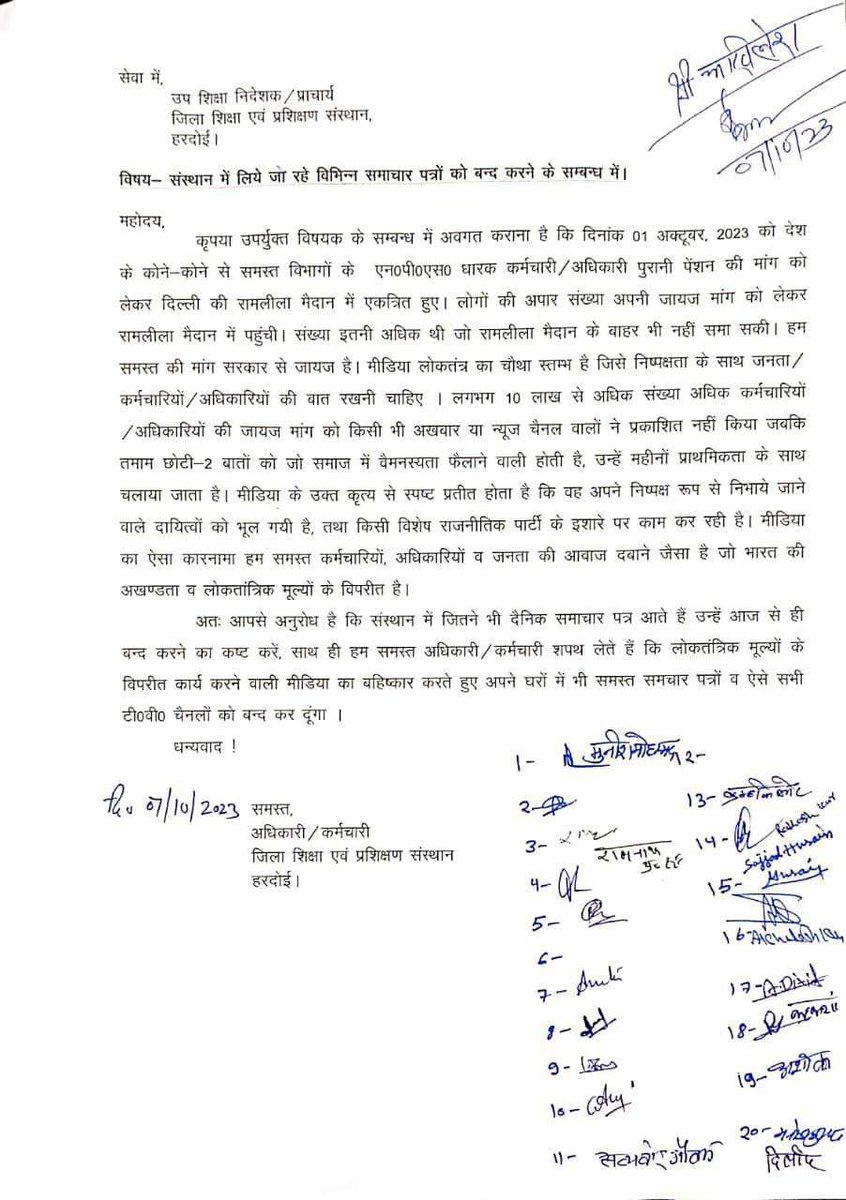 श्री अखिलेश
07/10/23
सेवा में,
उप शिक्षा निदेशक/प्राचार्य
जिला शिक्षा एवं प्रशिक्षण संस्थान,
हरदोई।
विषय– संस्थान में लिये जा रहे विभिन्न समाचार पत्रों को बन्द करने के सम्बन्ध में।
महोदय,
कृपया उपर्युक्त विषयक के सम्बन्ध में अवगत कराना है कि दिनांक 01 अक्टूबर, 2023 को देश
के कोने–कोने से समस्त विभागों के एन0पी0एस0 धारक कर्मचारी/अधिकारी पुरानी पेंशन की मांग को
लेकर दिल्ली की रामलीला मैदान में एकत्रित हुए। लोगों की अपार संख्या अपनी जायज मांग को लेकर
रामलीला मैदान में पहुंची। संख्या इतनी अधिक थी जो रामलीला मैदान के बाहर भी नहीं समा सकी। हम
समस्त की मांग सरकार से जायज है। मीडिया लोकतंत्र का चौथा स्तम्भ है जिसे निष्पक्षता के साथ जनता/
कर्मचारियों/अधिकारियों की बात रखनी चाहिए । लगभग 10 लाख से अधिक संख्या अधिक कर्मचारियों
/अधिकारियों की जायज मांग को किसी भी अखबार या न्यूज चैनल वालों ने प्रकाशित नहीं किया जबकि
तमाम छोटी–2 बातों को जो समाज में वैमनस्यता फैलाने वाली होती है, उन्हें महीनों प्राथमिकता के साथ
चलाया जाता है। मीडिया के उक्त कृत्य से स्पष्ट प्रतीत होता है कि वह अपने निष्पक्ष रूप से निभाये जाने
वाले दायित्वों को भूल गयी है, तथा किसी विशेष राजनीतिक पार्टी के इशारे पर काम कर रही है। मीडिया
का ऐसा कारनामा हम समस्त कर्मचारियों, अधिकारियों व जनता की आवाज दबाने जैसा है जो भारत की
अखण्डता व लोकतांत्रिक मूल्यों के विपरीत है।
अतः आपसे अनुरोध है कि संस्थान में जितने भी दैनिक समाचार पत्र आते हैं उन्हें आज से ही
बन्द करने का कष्ट करें, साथ ही हम समस्त अधिकारी/कर्मचारी शपथ लेते हैं कि लोकतंत्रिक मूल्यों के
विपरीत कार्य करने वाली मीडिया का बहिष्कार करते हुए अपने घरों में भी समस्त समचार पत्रों व ऐसे सभी
टी0वी0 चैनलों को बन्द कर दूंगा ।
धन्यवाद !
दि0 07/10/2023 समस्त,
अधिकारी/कर्मचारी
जिला शिक्षा एवं प्रशिक्षण संस्थान
हरदोई।
1-
2-
3-
4-
5-
6-
7-
8-
9-
10-
11-
12-
13-
14-
Sajjad Husain
15-
16-
17- A.Dixit
18-
19- अशोक
20-
दिलीप